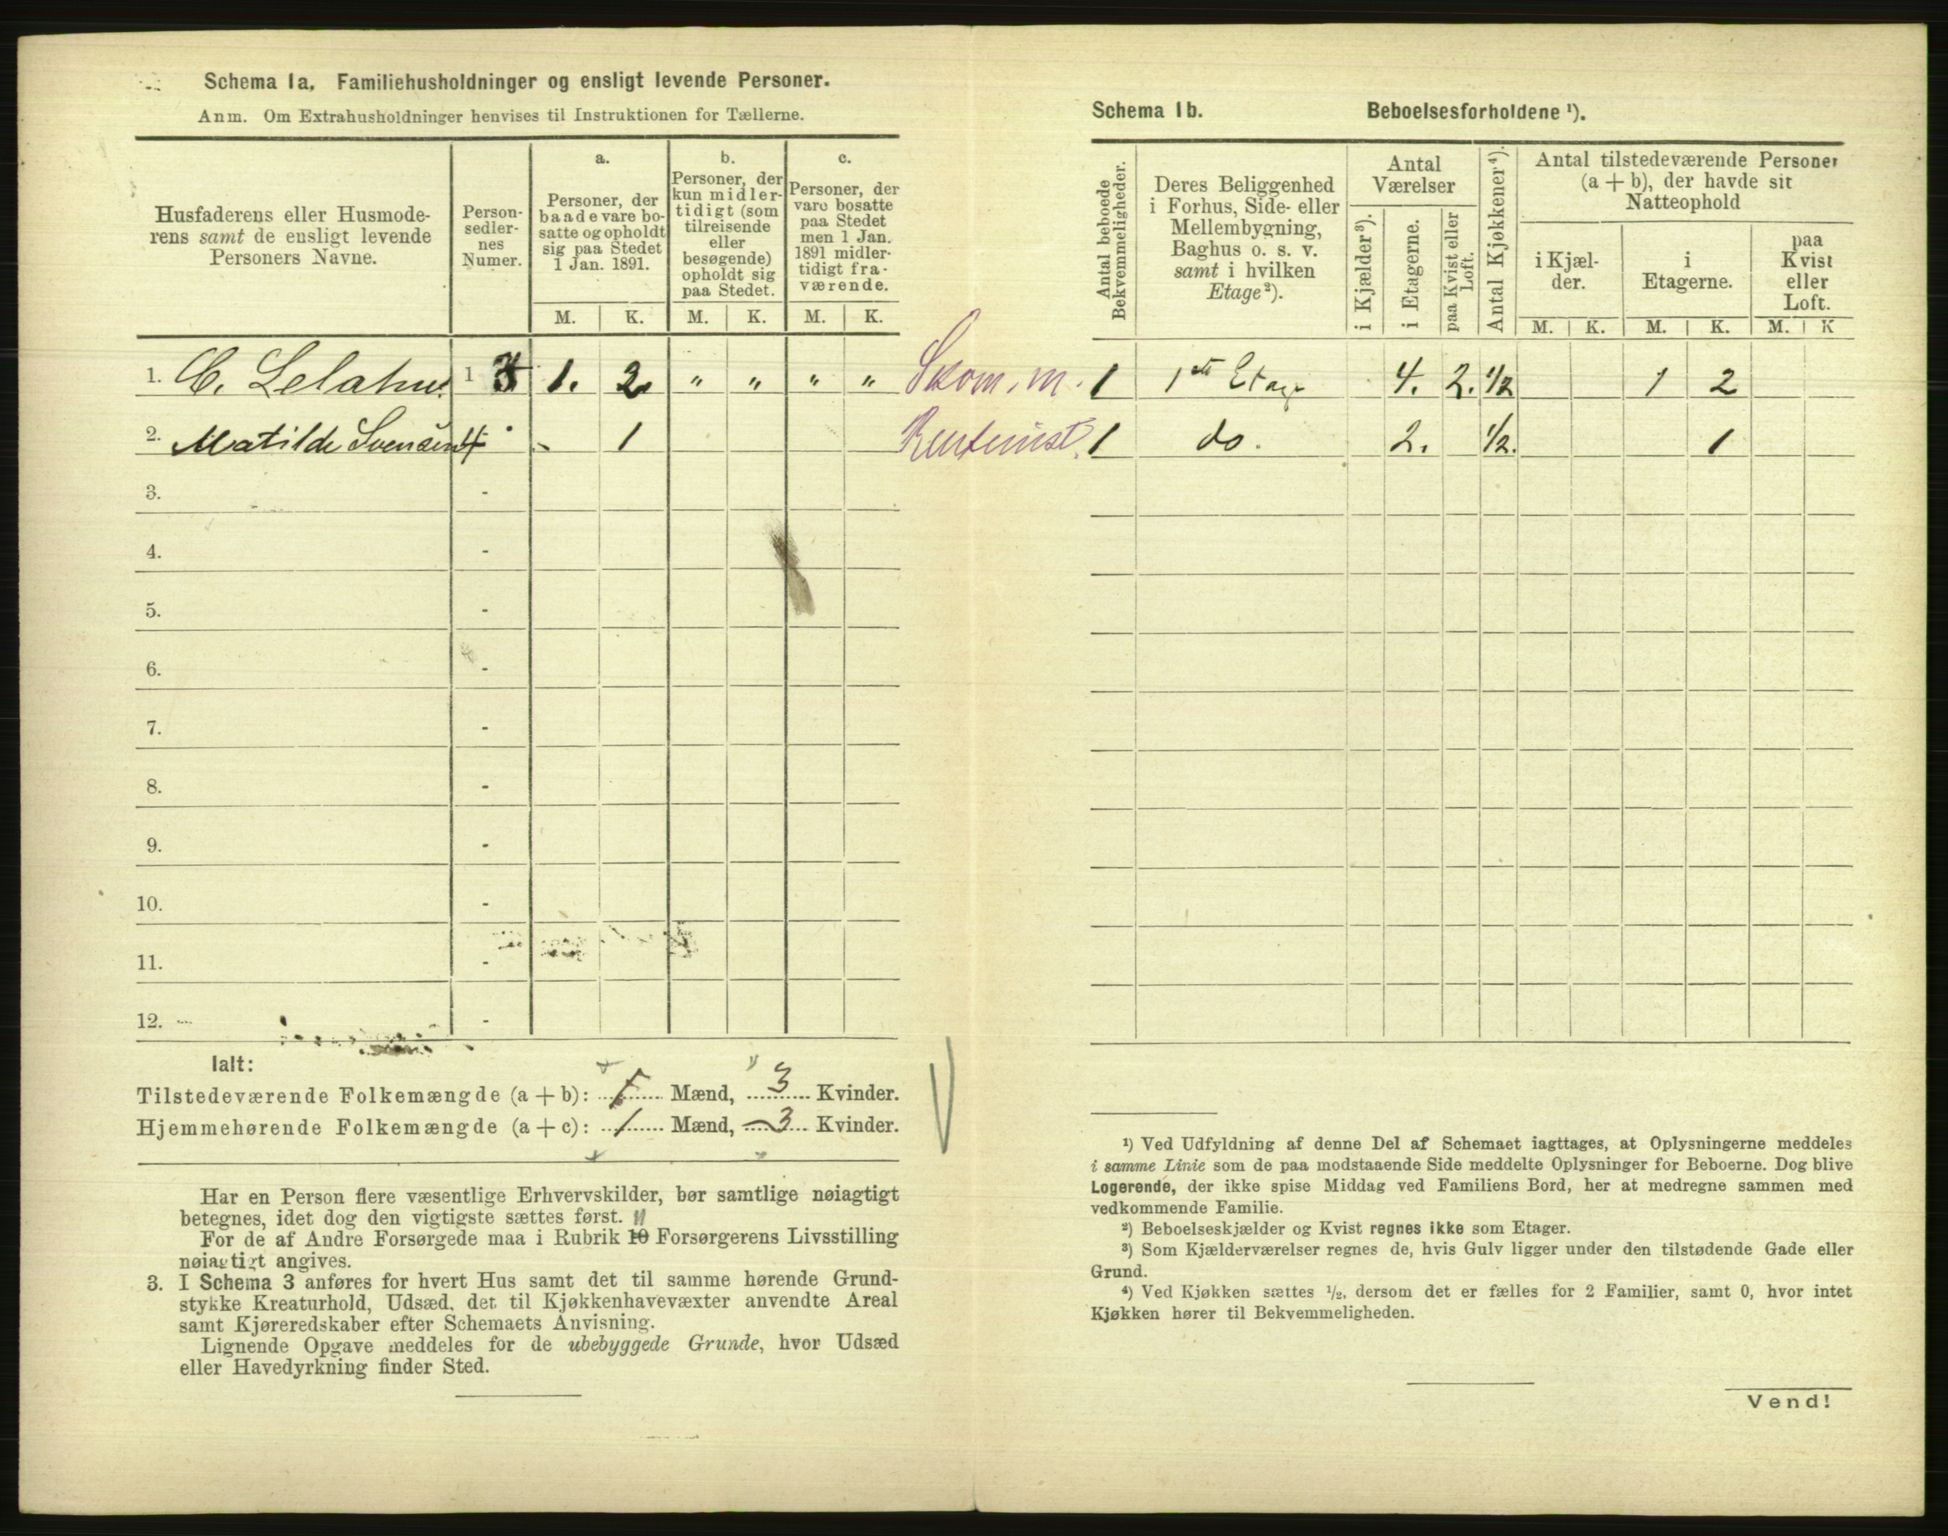 Schema 1a. Familiehusholdninger og ensligt levende Personer.
Anm. Om Extrahusholdninger henvises til Instruktionen for Tællerne.
Husfaderens eller Husmode-
rens samt de ensligt levende
Personers Navne.
Person-
sedler-
nes
Numer.
a.
Personer, der
baade vare bo-
satte og opholdt
sig paa Stedet
1 Jan. 1891.
b.
Personer, der
kun midler-
tidigt (som
tilreisende
eller
besøgende)
opholdt sig
paa Stedet.
c.
Personer, der
vare bosatte
paa Stedet
men 1 Jan.
1891 midler-
tidigt fra-
værende.
M. K. M. K. M. K.
1. C. 1 3 1. 2 " " " " Skom. m.
2. Matilde Svensen 4 - 1
3. -
4. -
5. -
6. -
7. -
8. -
9. -
10. -
11. -
12. -
Ialt:
Tilstedeværende Folkemængde (a + b): 1 Mænd, 3 Kvinder.
Hjemmehørende Folkemængde (a + c): 1 Mænd, 3 Kvinder.
Har en Person flere væsentlige Erhvervskilder, bør samtlige nøiagtigt
betegnes, idet dog den vigtigste sættes først.
For de af Andre Forsørgede maa i Rubrik 10 Forsørgerens Livsstilling
nøiagtigt angives.
3. I Schema 3 anføres for hvert Hus samt det til samme hørende Grund-
stykke Kreaturhold, Udsæd, det til Kjøkkenhavevæxter anvendte Areal
samt Kjøreredskaber efter Schemaets Anvisning.
Lignende Opgave meddeles for de ubebyggede Grunde, hvor Udsæd
eller Havedyrkning finder Sted.
Schema 1b. Beboelsesforholdene ¹).
Antal beboede
Bekvemmeligheder.
Deres Beliggenhed
i Forhus, Side- eller
Mellembygning,
Baghus o. s. v.
samt i hvilken
Etage²).
Antal
Værelser
i Kjælder³).
i Etagerne.
paa Kvist eller
Loft.
Antal Kjøkkener⁴).
Antal tilstedeværende Personer
(a + b), der havde sit
Natteophold
i Kjæl-
der.
i
Etagerne.
paa
Kvist
eller
Loft.
M. K. M. K. M. K
1 1ste Etage 4. 2. 1/2 1 2
1 do. 2. 1/2. 1
¹) Ved Udfyldning af denne Del af Schemaet iagttages, at Oplysningerne meddeles
i samme Linie som de paa modstaaende Side meddelte Oplysninger for Beboerne. Dog blive
Logerende, der ikke spise Middag ved Familiens Bord, her at medregne sammen med
vedkommende Familie.
²) Beboelseskjælder og Kvist regnes ikke som Etager.
³) Som Kjælderværelser regnes de, hvis Gulv ligger under den tilstødende Gade eller
Grund.
⁴) Ved Kjøkken sættes ½, dersom det er fælles for 2 Familier, samt 0, hvor intet
Kjøkken hører til Bekvemmeligheden.
Vend!